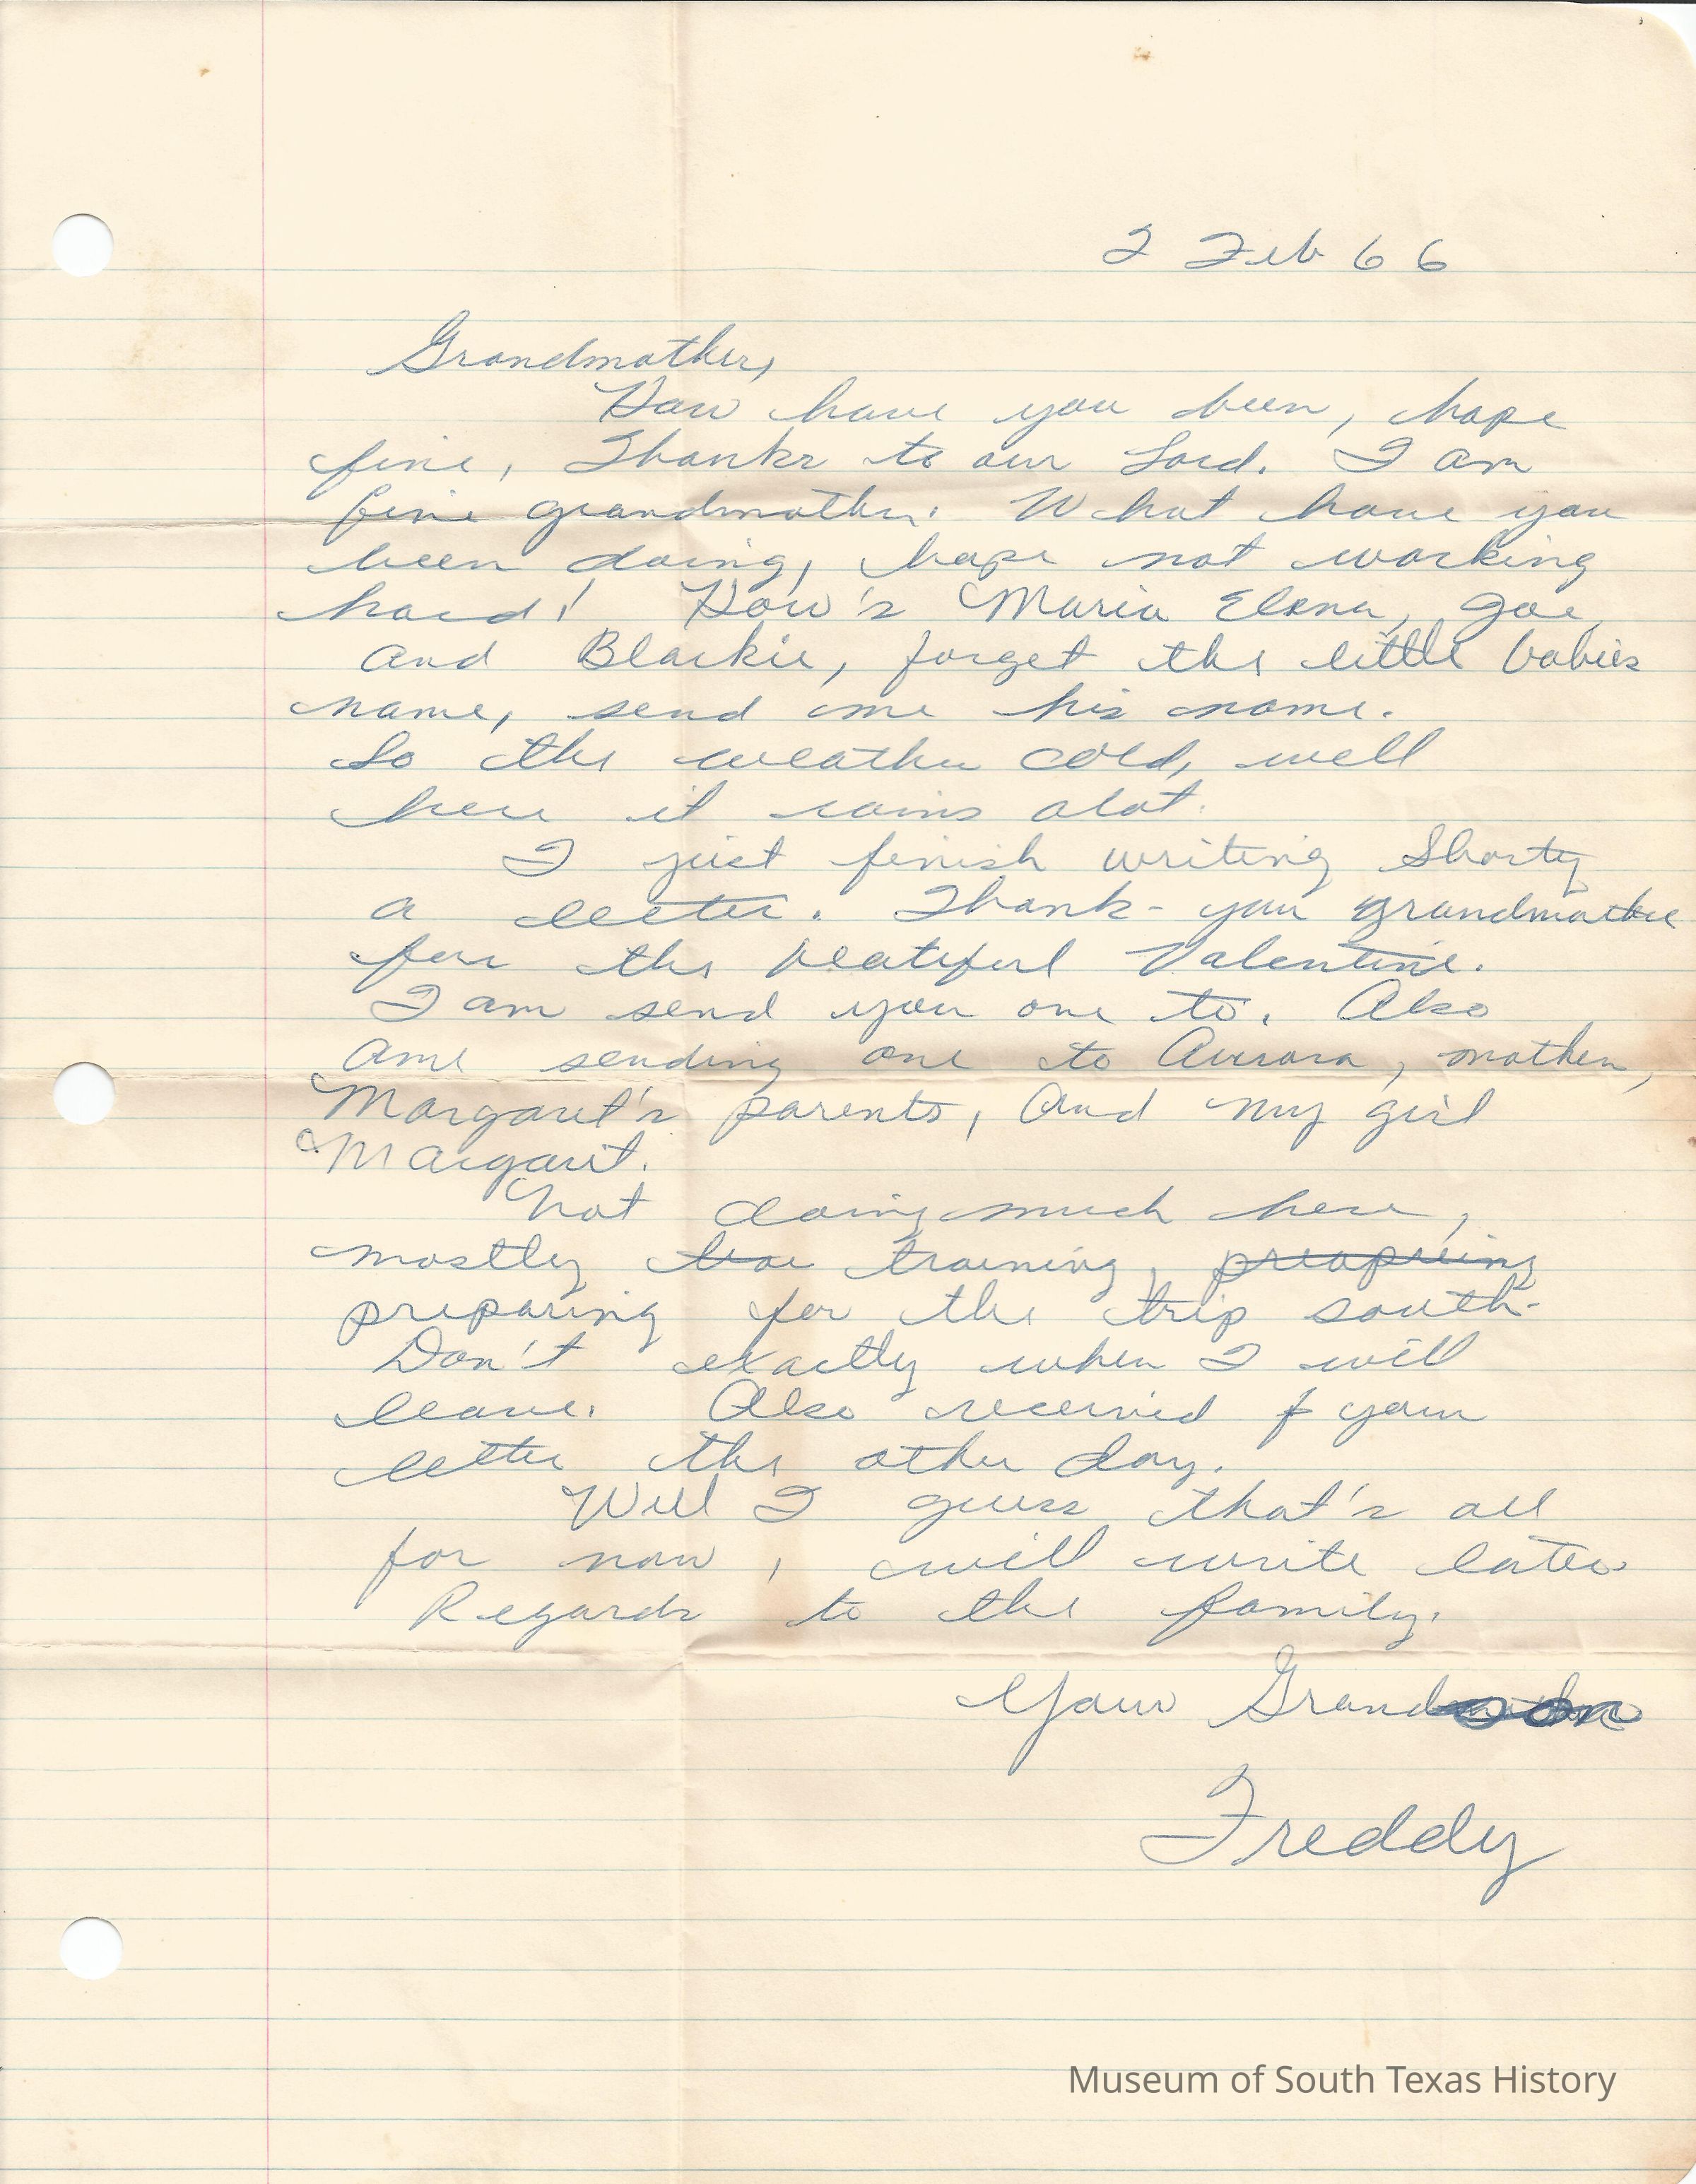 2 Feb 66
Grandmother,
How have you been, hope
fine, Thanks to our Lord. I am
fine grandmother. What have you
been doing, hope not working
hard! How's Maria Elena, Joe,
and Blackie, forget the little babies
name, send me his name.
So the weather cold, well
here it rains alot.
I just finish writing Shorty
a letter. Thank-you grandmother
for the beatiful Valentine.
I am send you one to. Also
ame sending one to Aurora, mother,
Margaret's parents, and my girl
Margaret.
Not doing much here,
mostly trai training, preapreing
preparing for the trip south.
Don't exactly when I will
leave. Also received f your
letter the other day.
Well I guess that's all
for now, will write later
Regards to the family.
Your Grandson
Freddy
Museum of South Texas History